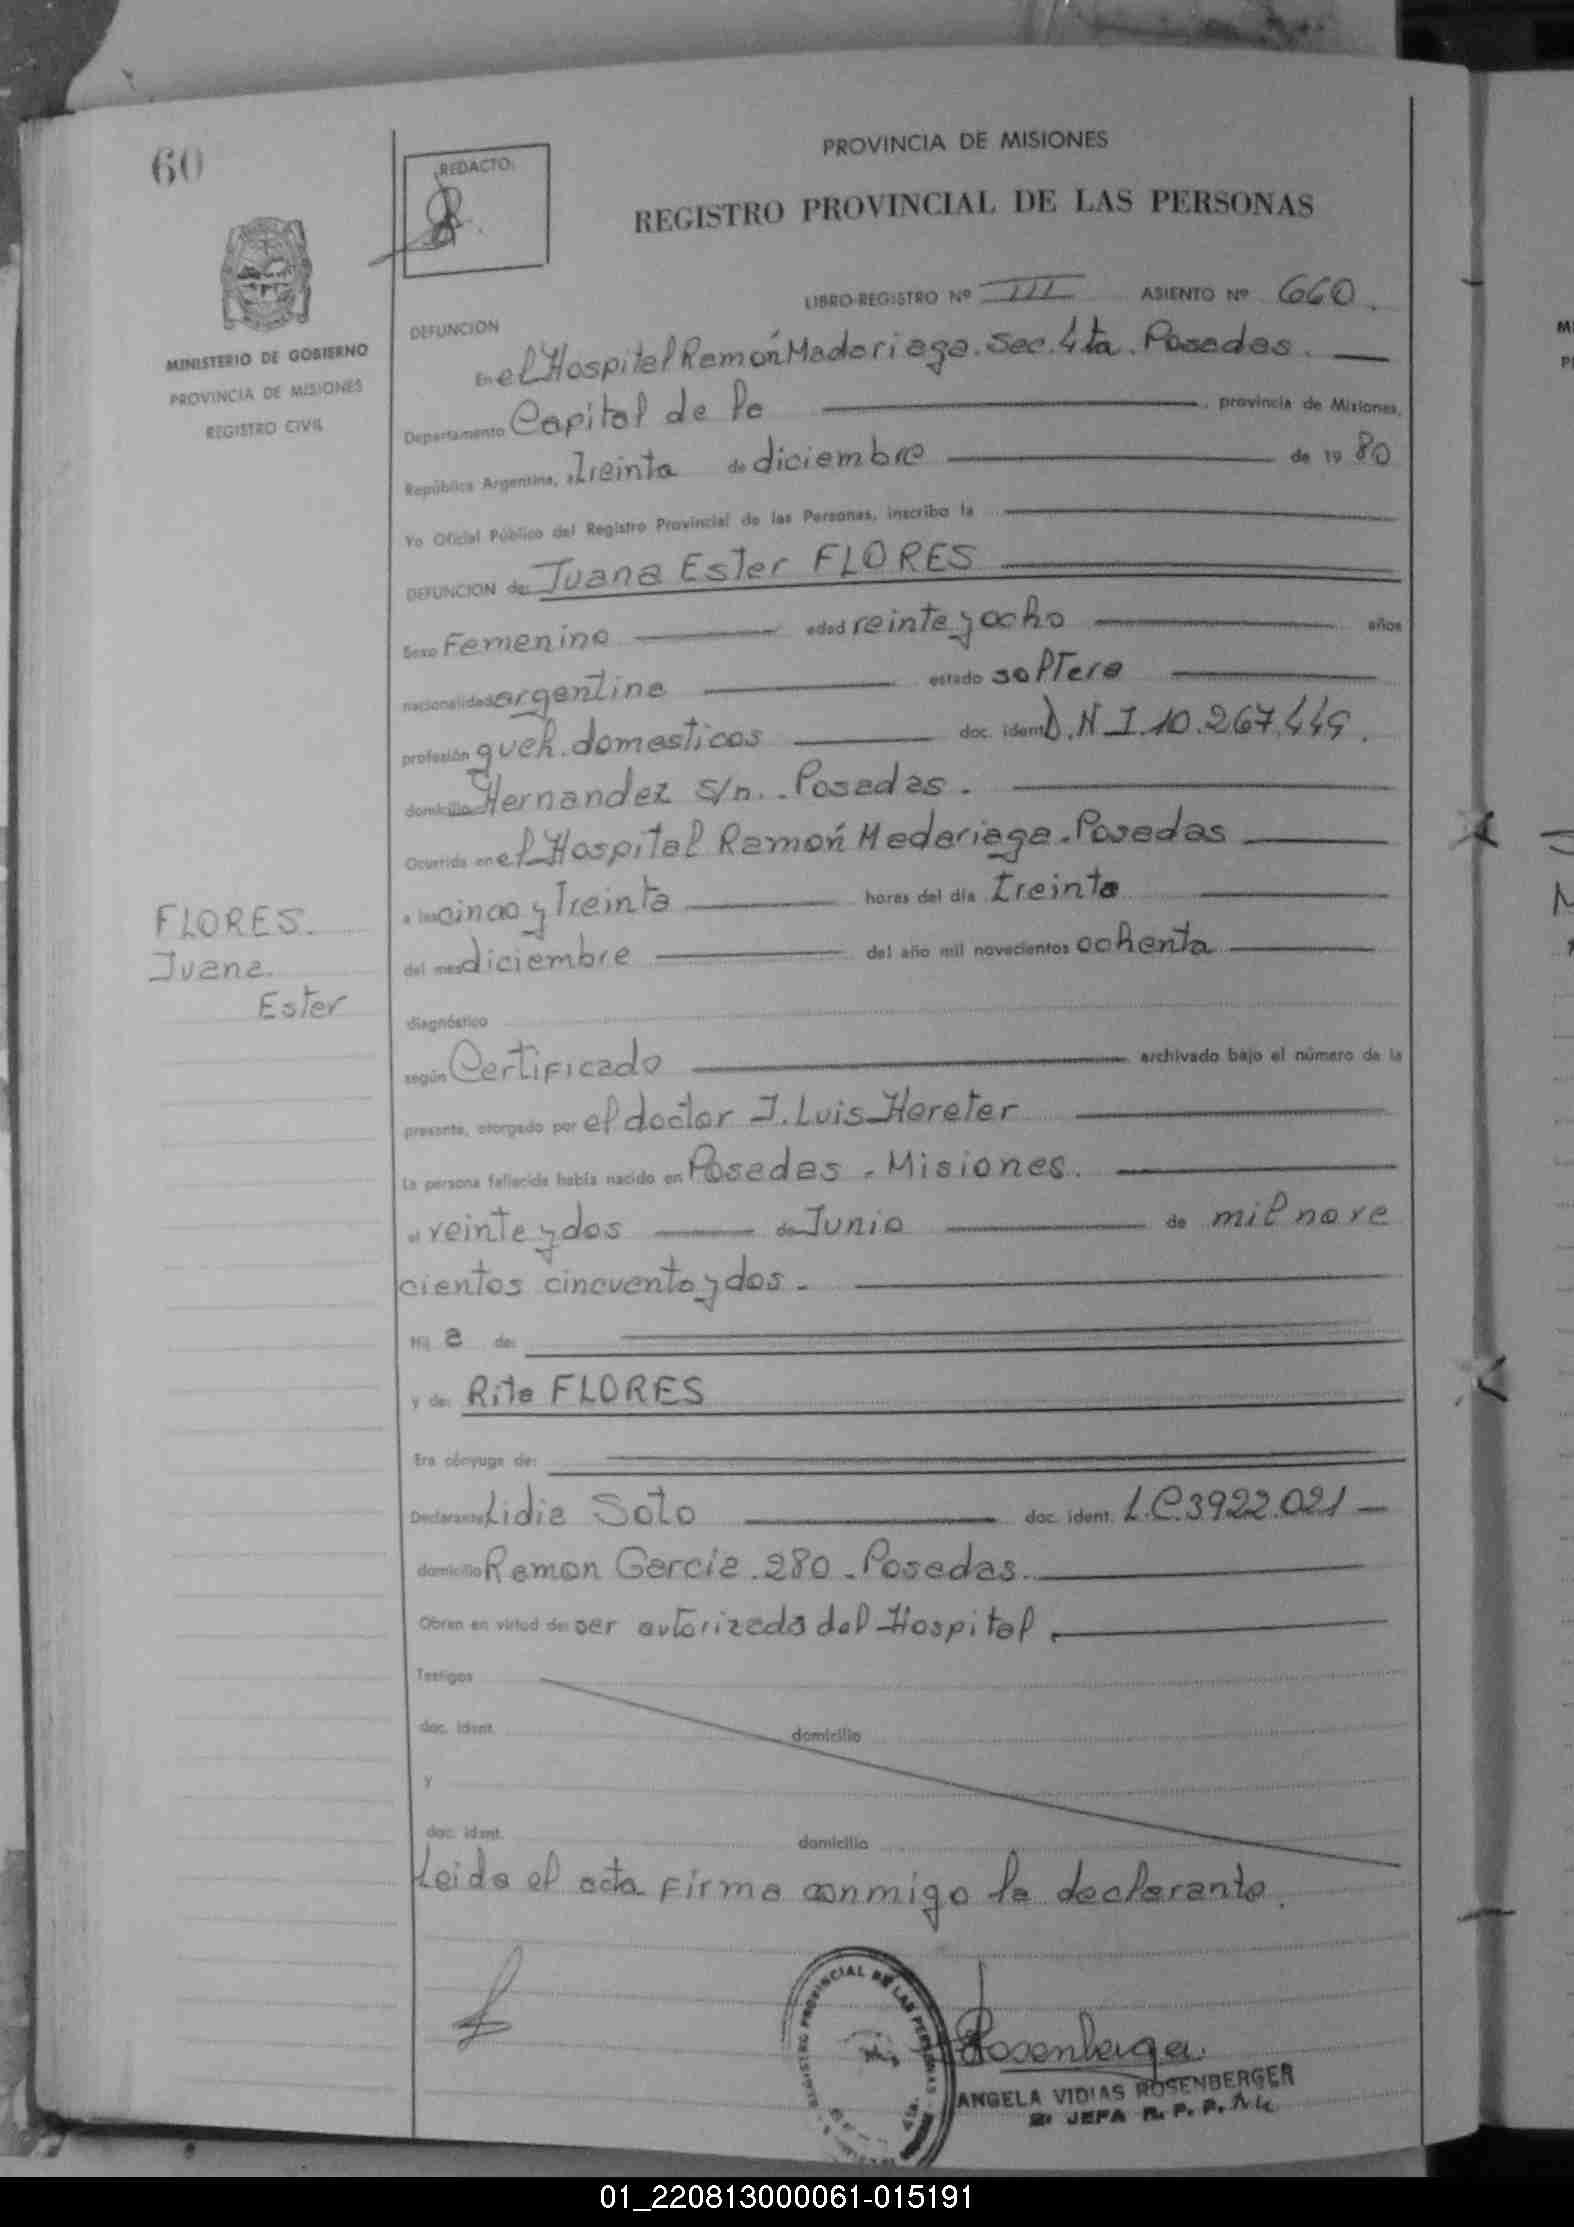 60
REDACTO:
PROVINCIA DE MISIONES
REGISTRO PROVINCIAL DE LAS PERSONAS
MINISTERIO DE GOBIERNO
PROVINCIA DE MISIONES
REGISTRO CIVIL
LIBRO-REGISTRO Nº III ASIENTO Nº 660.
DEFUNCION
En el Hospital Ramón Madariaga. Sec. 4ta. Posadas.
Departamento Capital de la provincia de Misiones,
República Argentina, a Treinta de diciembre de 19 80
Yo Oficial Público del Registro Provincial de las Personas, inscribo la
DEFUNCION de: Juana Ester FLORES
Sexo Femenino edad veinte y ocho años
nacionalidad argentina estado soltera
profesión queh. domesticos doc. ident. D.N.I. 10.267.449.
domicilio Hernandez s/n. Posadas.
Ocurrida en el Hospital Ramón Madariaga. Posadas
a las cinco y Treinta horas del día treinta
del mes diciembre del año mil novecientos ochenta
FLORES.
Juana
Ester
diagnóstico
según Certificado archivado bajo el número de la
presente, otorgado por el doctor J. Luis Hereter
La persona fallecida había nacido en Posadas. Misiones.
el veinte y dos de Junio de mil nove
cientos cincuenta y dos.
Hij a de:
y de: Rita FLORES
Era cónyuge de:
Declarante Lidia Soto doc. ident. L.C. 3922.021
domicilio Ramon Garcia. 280. Posadas.
Obran en virtud de: ser autorizada del Hospital.
Testigos
doc. ident. domicilio
y
doc. ident. domicilio
Leida el acta firma conmigo la declarante.
REGISTRO PROVINCIAL DE LAS PERSONAS
Rosenberger
ANGELA VIDIAS ROSENBERGER
2º JEFA R. P. P.
01_220813000061-015191